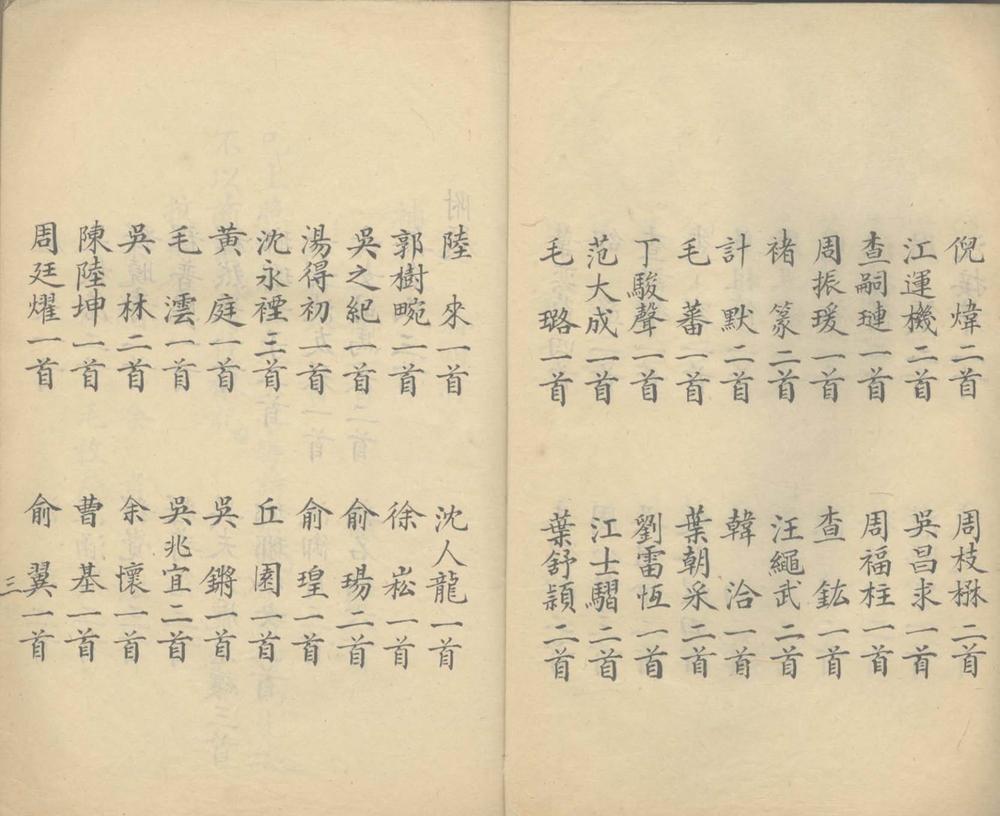 倪煒二首 周枝楙二首
江運機二首 吳昌求一首
查嗣璉一首 周福柱一首
周振瑗一首 查鉉一首
褚篆二首 汪繩武二首
計默二首 韓洽一首
毛蕃一首 葉朝采二首
丁駿聲一首 劉雷恆一首
范大成一首 江士騽二首
毛璐一首 葉舒穎二首
陸來一首 沈人龍一首
郭樹畹一首 徐崧一首
吳之紀一首 俞瑒二首
湯得初一首 俞瑝一首
沈永禋三首 丘園一首
黃庭一首 吳鏘一首
毛澐一首 吳兆宜二首
吳林二首 余懷一首
陳陸坤一首 曹基一首
周廷燿一首 俞翼一首
三